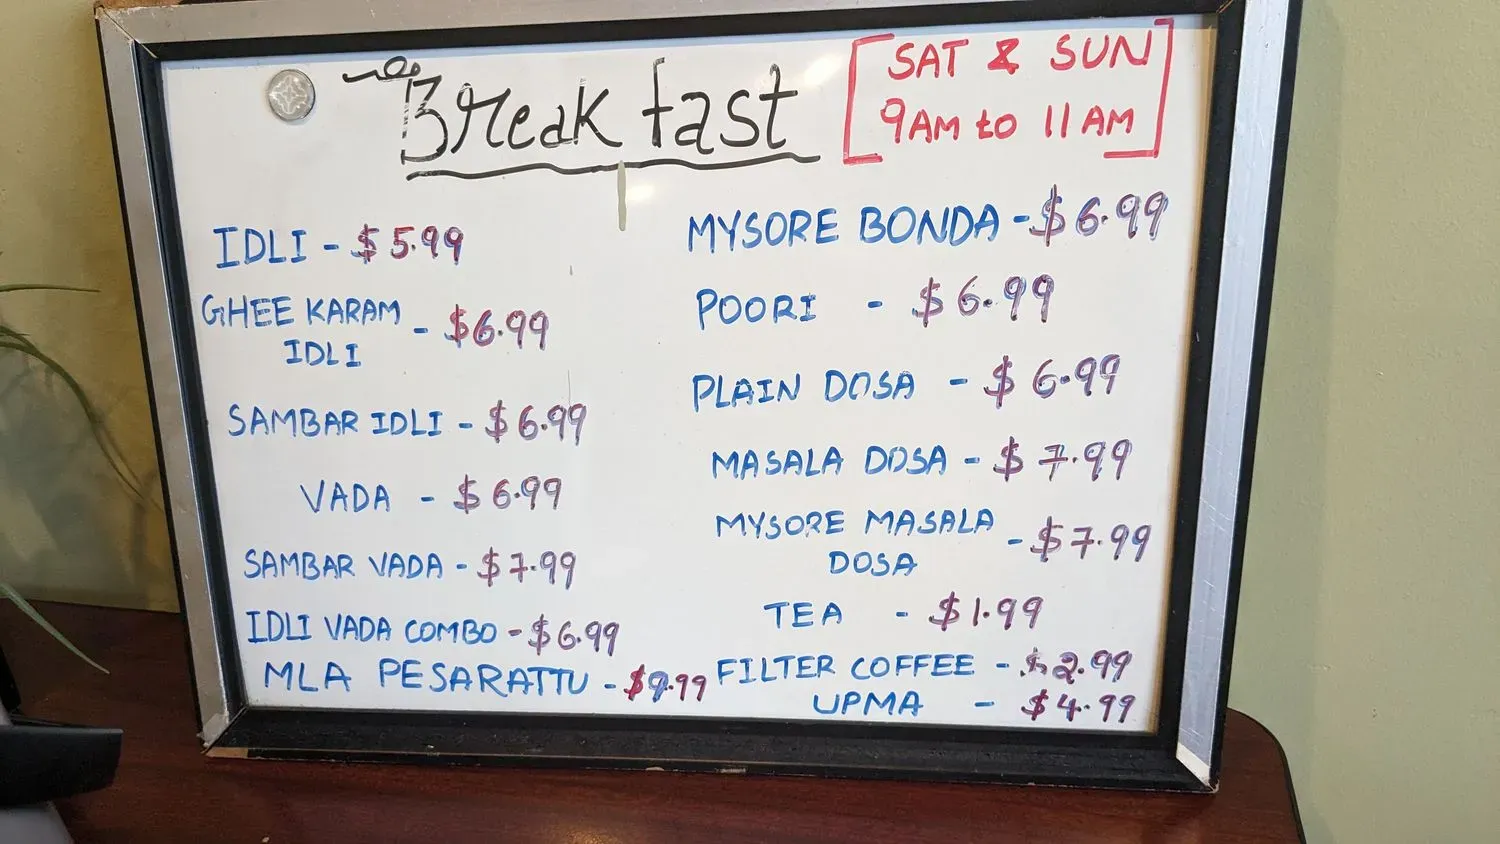 Breakfast
SAT & SUN
9AM to 11AM
IDLI - $5.99
GHEE KARAM
IDLI
- $6.99
SAMBAR IDLI - $6.99
VADA - $6.99
SAMBAR VADA - $7.99
IDLI VADA COMBO - $6.99
MLA PESARATTU - $9.99
MYSORE BONDA - $6.99
POORI - $6.99
PLAIN DOSA - $6.99
MASALA DOSA - $7.99
MYSORE MASALA
DOSA
- $7.99
TEA - $1.99
FILTER COFFEE - $2.99
UPMA - $4.99